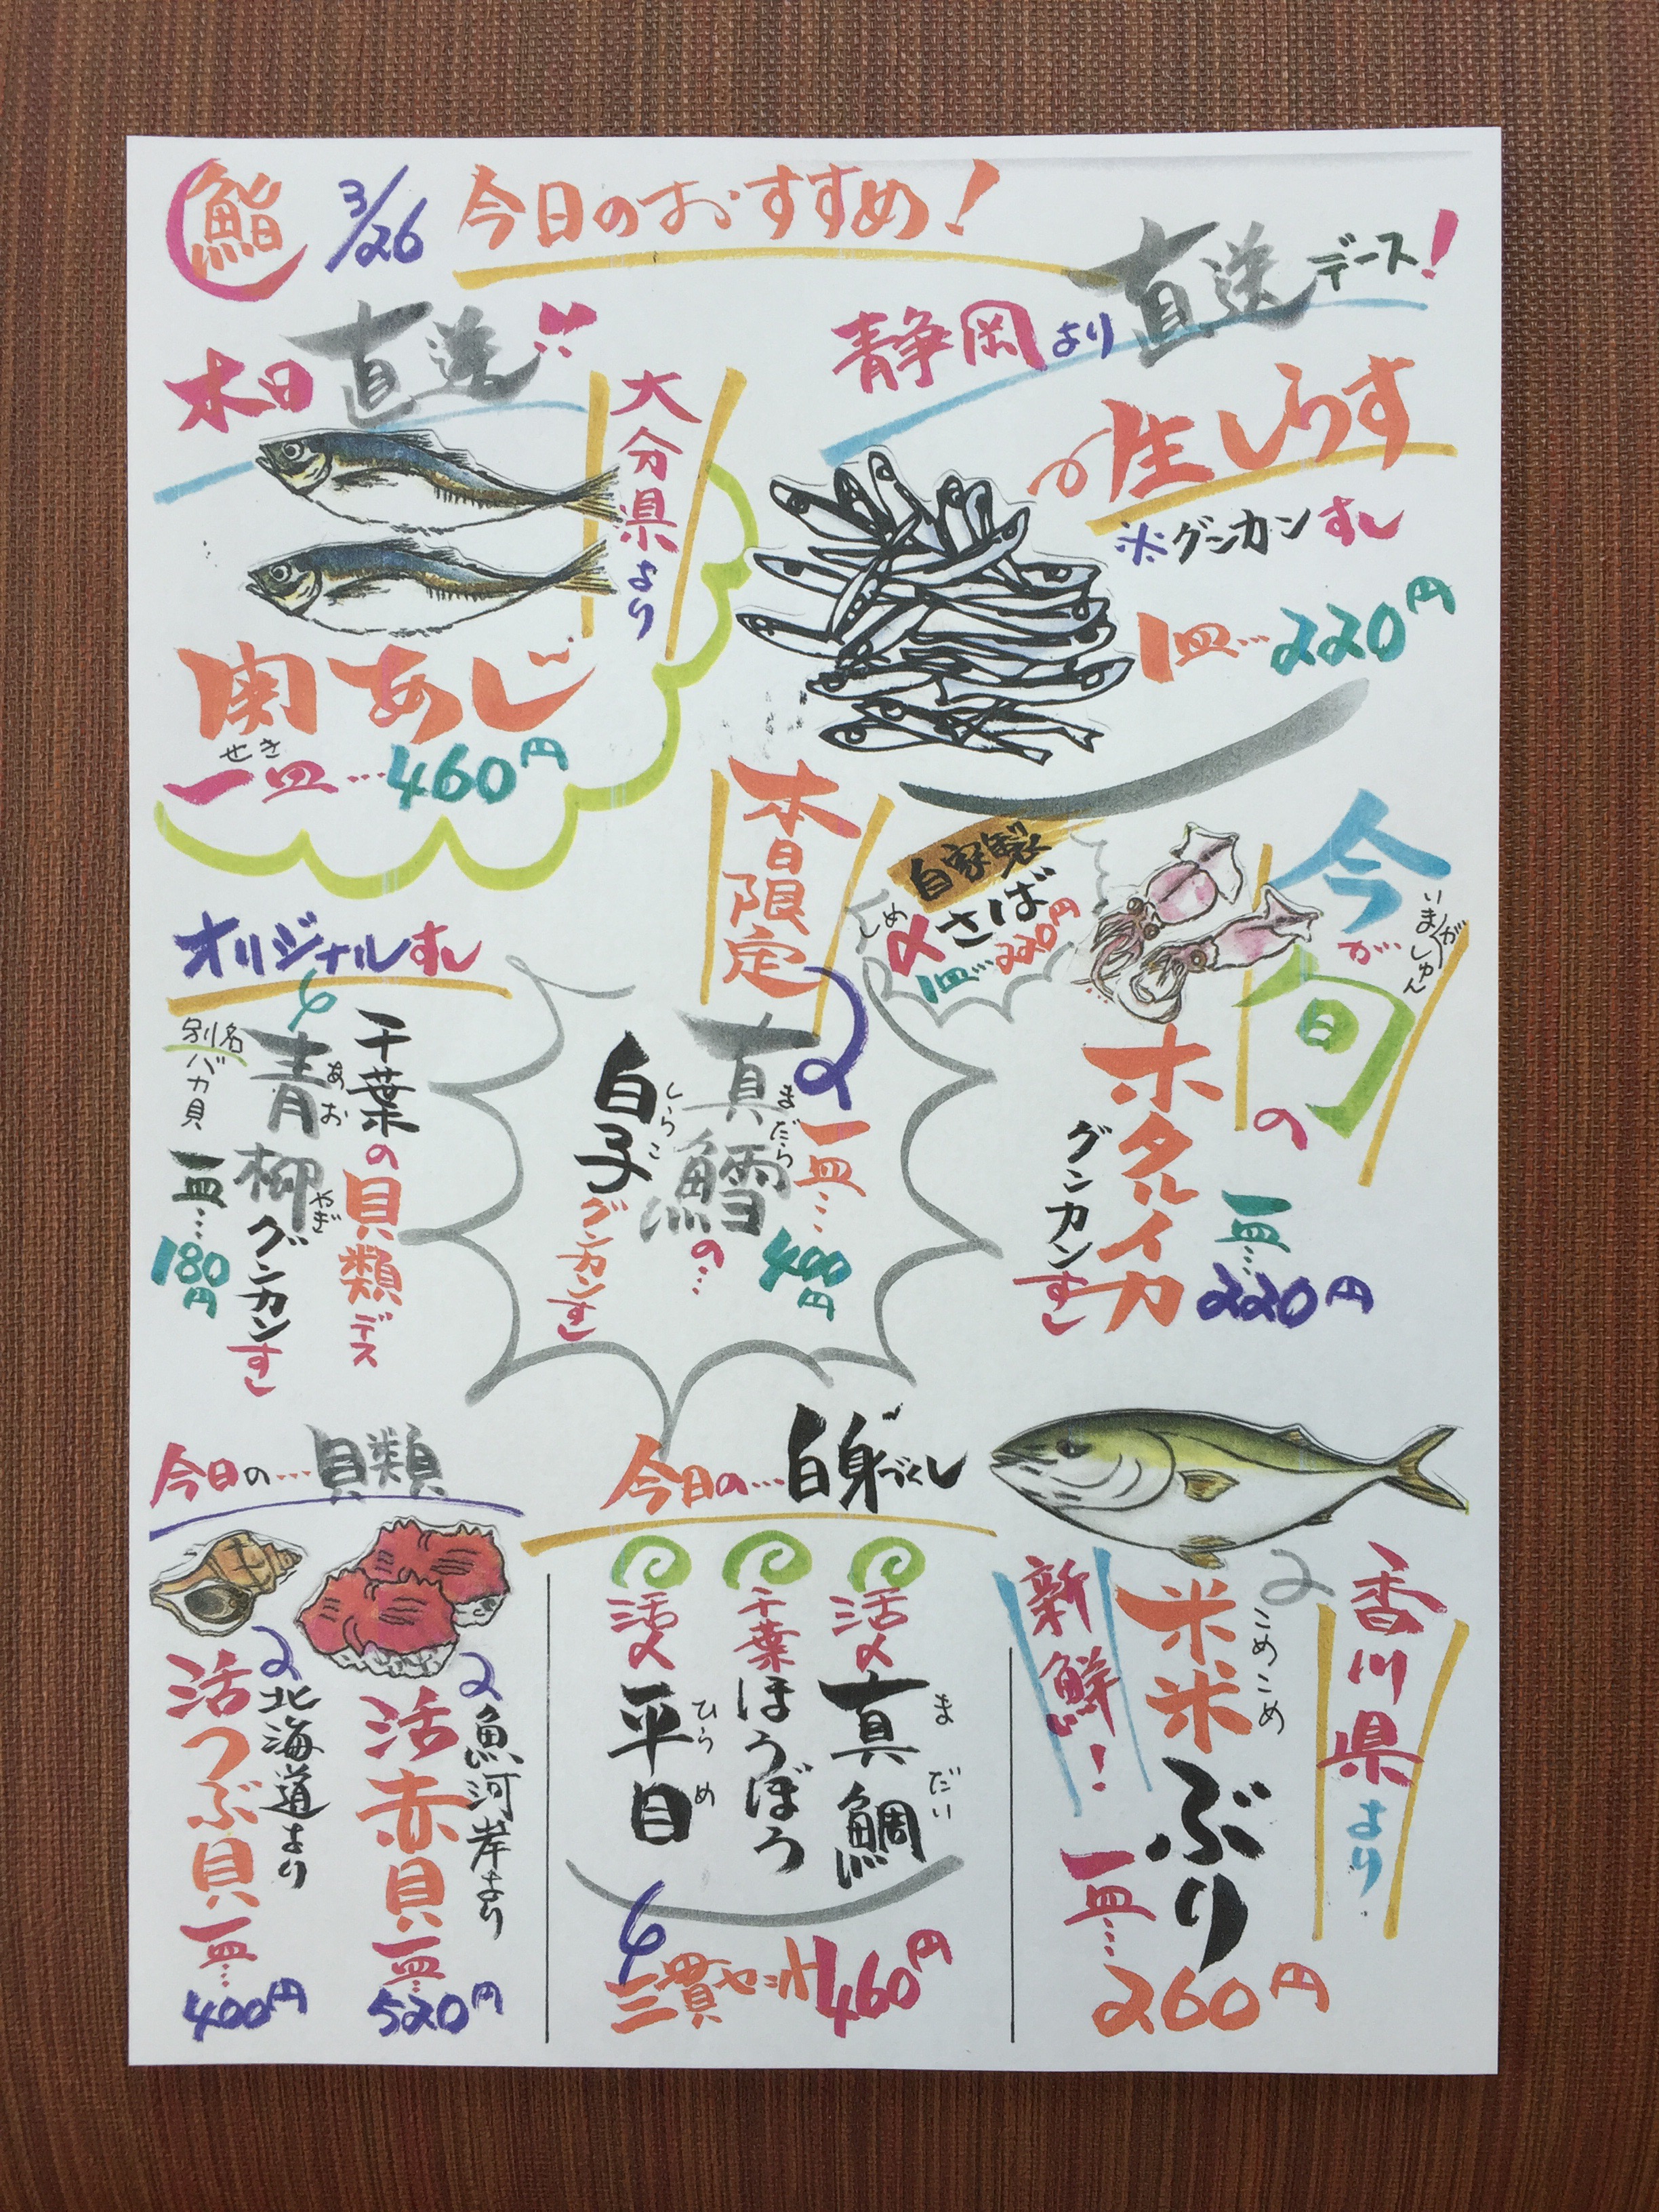 鮨
3/26
今日のおすすめ!
本日直送
大分県より
関あじ
せき
一皿…460円
静岡より直送デース!
の生しらす
※グンカンすし
1皿…220円
本日限定
真鱈の…
まだら
白子
しらこ
グンカンすし
一皿…
480円
自家製
〆さばしめ
1皿…220円
今が旬の
いまがしゅん
ホタルイカ
グンカンすし
一皿…
220円
オリジナルすし
千葉の貝類デス
青柳グンカンすし
あおやぎ
別名バカ貝
一皿…
180円
今日の…貝類
魚河岸より
活赤貝
一皿…
520円
北海道より
活つぶ貝
一皿…
400円
今日の…白身づくし
活〆真鯛
まだい
千葉ほうぼう
活〆平目
ひらめ
三貫セット460円
香川県より
米米ぶり
こめこめ
新鮮!
一皿…
260円